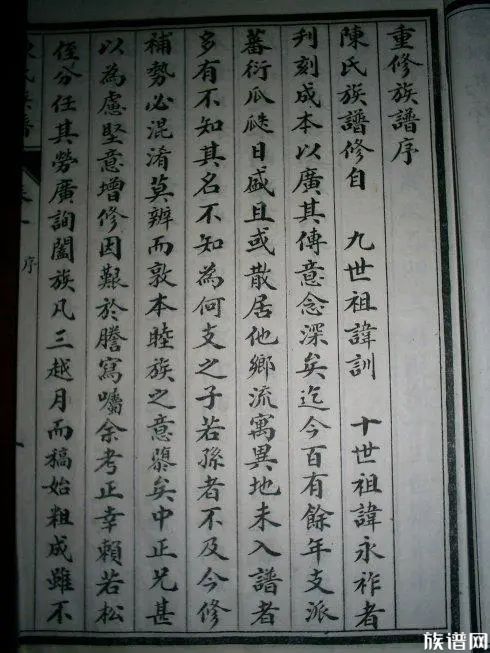 重修族譜序
陳氏族譜修自 九世祖諱訓 十世祖諱永祚者
刊刻成本以廣其傳意念深矣迄今百有餘年支派
蕃衍瓜瓞日盛且或散居他鄉流寓異地未入譜者
多有不知其名不知為何支之子若孫者不及今修
補勢必混淆莫辨而敦本睦族之意隳矣中正兄甚
以為慮堅意增修因艱於謄寫囑余考正幸賴若松
侄分任其勞廣詢闔族凡三越月而稿始粗成雖不
氏族譜
序
族谱网